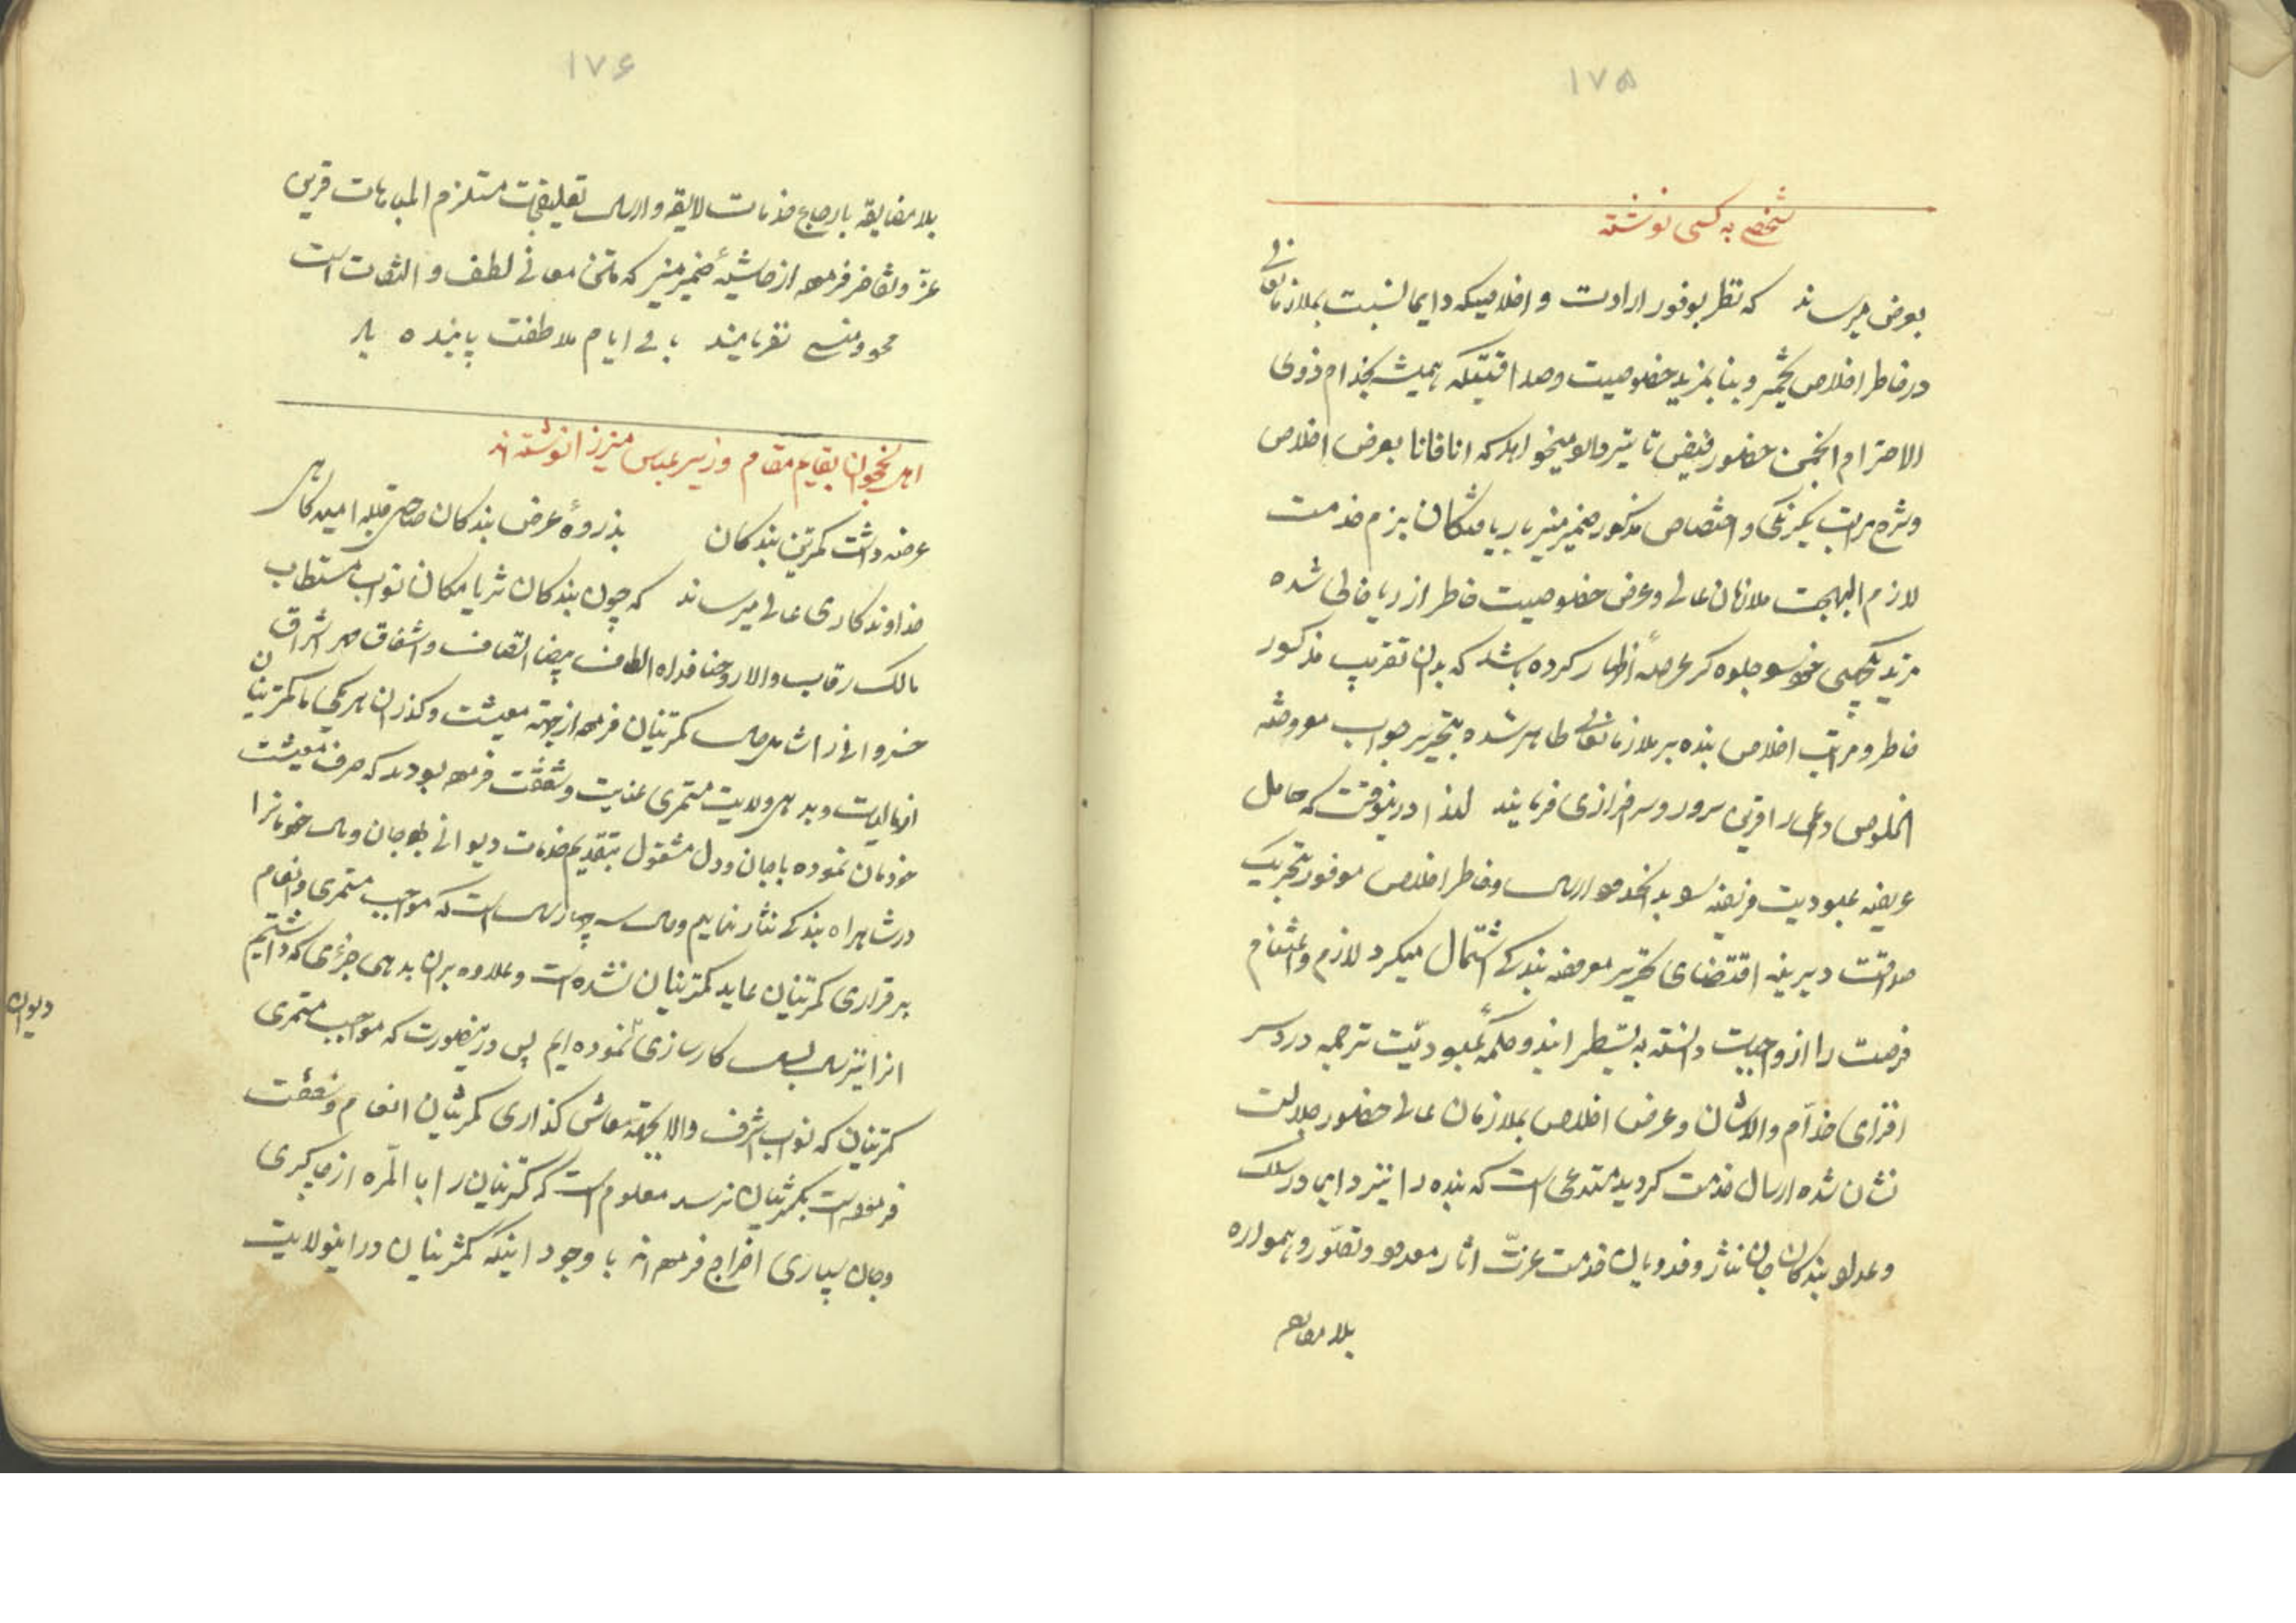 ۱۷۵
شخصی به کسی نوشته
بعرض میرساند که نظر بوفور ارادت و اخلاصیکه دایما نسبت بملازمان
در خاطر اخلاص تخمیر و بنا بمزید خصوصیت و صداقتیکه همیشه بخدام ذوی
الاحترام انجمن حضور فیض تاثیر میخواهد که انا فانا بعرض اخلاص
و شرح مراتب یکرنگی و اختصاص مذکور ضمیر منیر باریافتگان بزم خدمت
لازم البهجت ملازمان عالی و عرض خصوصیت خاطر از ریا خالی شده
مزید یکجهتی جلوه کر عرصهٔ اظهار کرده باشد که بدان تقریب مذکور
خاطر و مراتب اخلاص بنده بر ملازمان ظاهر شده بتحریر جواب معروضه
الخلوص داعی را قرین سرور و سرفرازی فرمایند لهذا درینوقت که حامل
عریضه عبودیت فریضه ارسال و خاطر اخلاص موفور بتحریک
صداقت دیرینه اقتضای تحریر معروضه بندگی اشتمال میکرد لازم و اغتنام
فرصت را از واجبات دانسته به تسطیر این دو کلمهٔ عبودیّت ترجمه دردسر
افزای خدّام والاشان و عرض اخلاص بملازمان عالی حضور جلالت
نشان شده ارسال خدمت کردید مستدعی است که بنده را نیز دایما در سلک
و عداد بندکان جان نثار و فدویان خدمت عزّت اثار معدود و تصوّر و همواره
بلا مضایقه
۱۷۶
بلا مضایقه بارجاع خدمات لایقه و ارسال تعلیقجات مستلزم المباهات قرین
عز و تفاخر فرموده از حاشیهٔ ضمیر منیر که متن معانی لطف و التفات است
محو و منسی نفرمایند باقی ایام ملاطفت پاینده باد
اهل نخجوان بقایم مقام وزیر عباس میرزا نوشته اند
عرضه داشت کمترین بندکان بذروهٔ عرض بندکان صاحبی قبله امیدکاهی
خداوندکاری عالی میرساند که چون بندکان ثریا مکان نواب مستطاب
مالک رقاب والا روحنا فداه الطاف بیضا التفات و اشفاق مهر اشراق
خسروانه را شامل حال کمترینان فرموده از جهت معیشت و کذران هر یکی ما کمترینان
از مالیات و بدهی ولایت مستمری عنایت و شفقت فرموده بودند که صرف معیشت
خودمان نموده با جان و دل مشغول بتقدیم خدمات دیوانی بوده جان و مال خودمانرا
در شاهراه بندکی نثار نماییم و حال سه چهار سال است که مواجب مستمری و انعام
برقراری کمترینان عاید کمترینان نشده است و علاوه بران بدهی جزئی که داشتیم
انرا نیز سال بسال کارسازی نموده ایم پس درینصورت که مواجب مستمری
دیوان
کمترینان که نواب اشرف والا بجهة معاش کذاری کمترینان انعام و شفقت
فرموده است بکمترینان نرسد معلوم است که کمترینان را بالمره از چاکری
و جان سپاری اخراج فرموده اند با وجود اینکه کمترینان در اینولایت